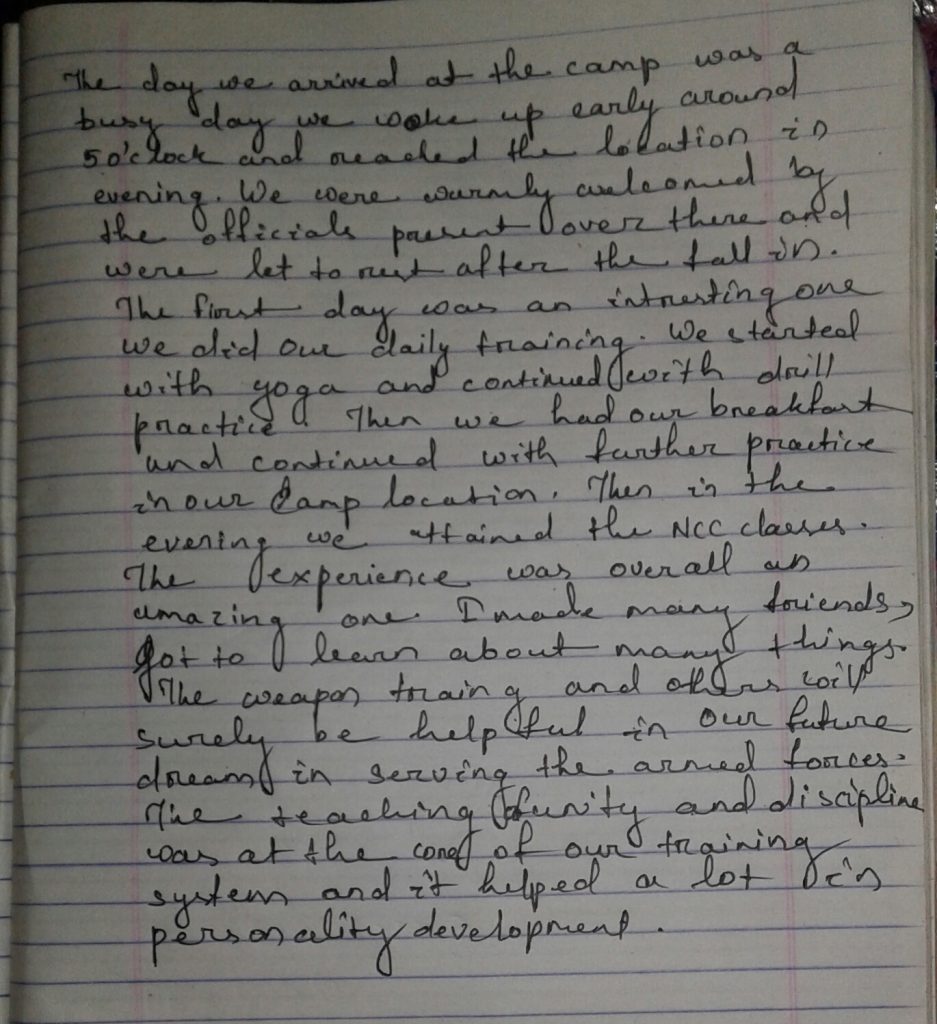 The day we arrived at the camp was a
busy day we woke up early around
5 o'clock and reached the location in
evening. We were warmly welcomed by
the officials present over there and
were let to rest after the fall in.
The first day was an intresting one
we did our daily training. We started
with yoga and continued with drill
practice. Then we had our breakfast
and continued with further practice
in our camp location. Then in the
evening we attained the NCC classes.
The experience was overall an
amazing one. I made many friends,
got to learn about many things.
The weapon traing and others will
surely be helpful in our future
dream in serving the armed forces.
The teaching of unity and discipline
was at the core of our training
system and it helped a lot in
personality development.